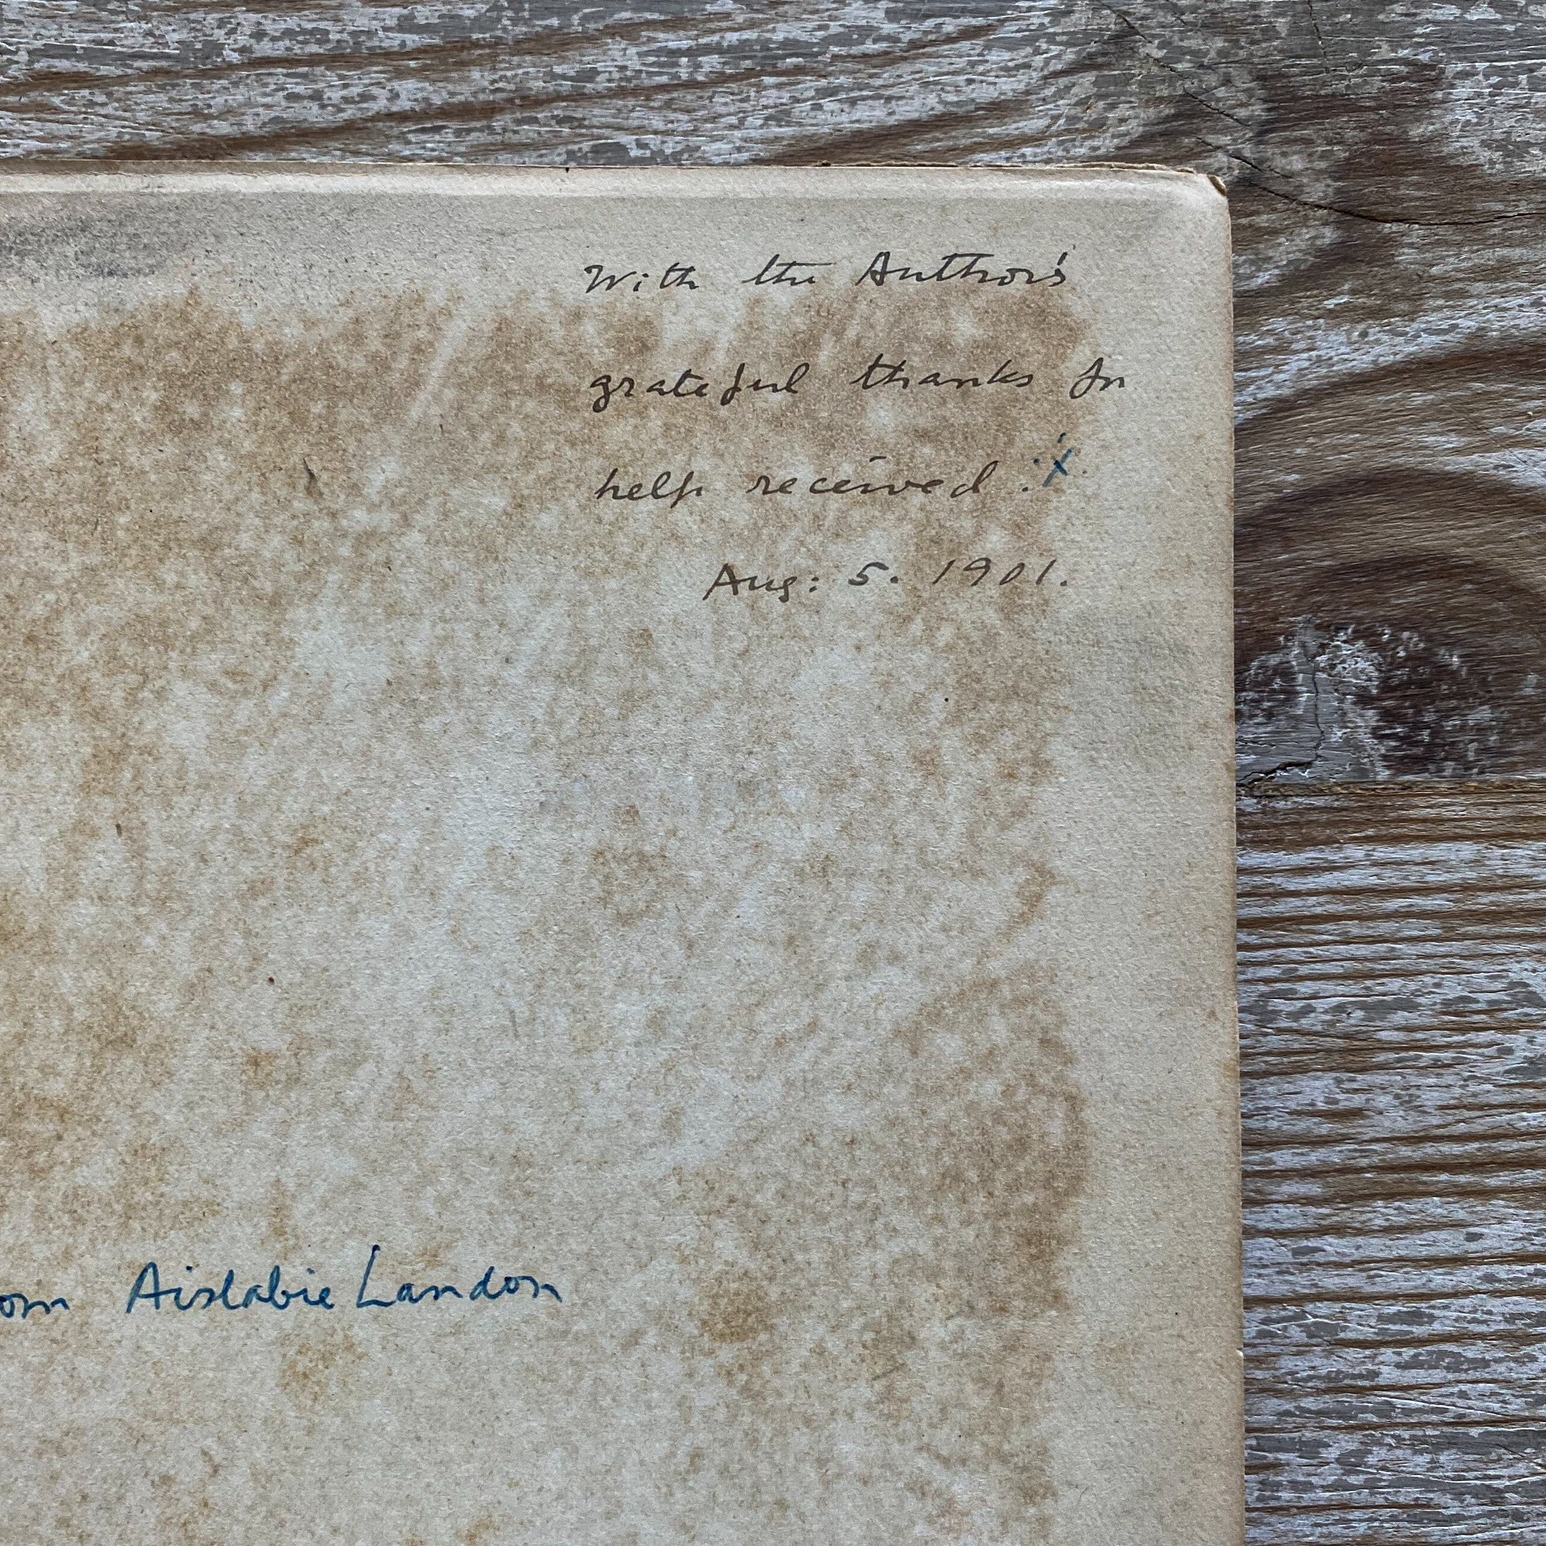 With the Author's
grateful thanks for
help received. X
Aug: 5. 1901.
om Aislabie Landon